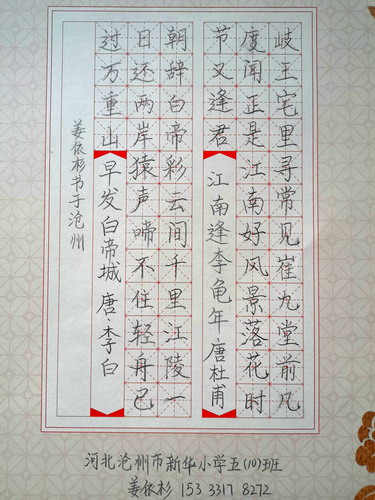 岐王宅里寻常见崔九堂前几
度闻正是江南好风景落花时
节又逢君 江南逢李龟年 唐杜甫
朝辞白帝彩云间千里江陵一
日还两岸猿声啼不住轻舟已
过万重山 早发白帝城 唐·李白
姜依杉书于沧州
河北沧州市新华小学五(10)班
姜依杉 153 3317 8272